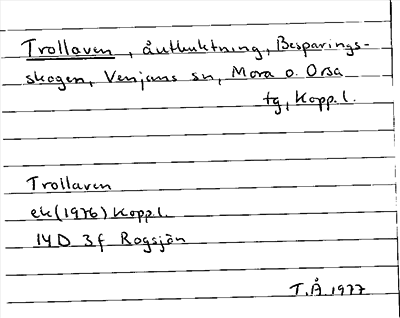 Trollaven, åutbuktning, Besparings-
skogen, Venjans sn, Mora o. Orsa
tg, Kopp.l.
Trollaven
ek (1976) Kopp.l.
14D 3f Rogsjön
T.Å. 1977